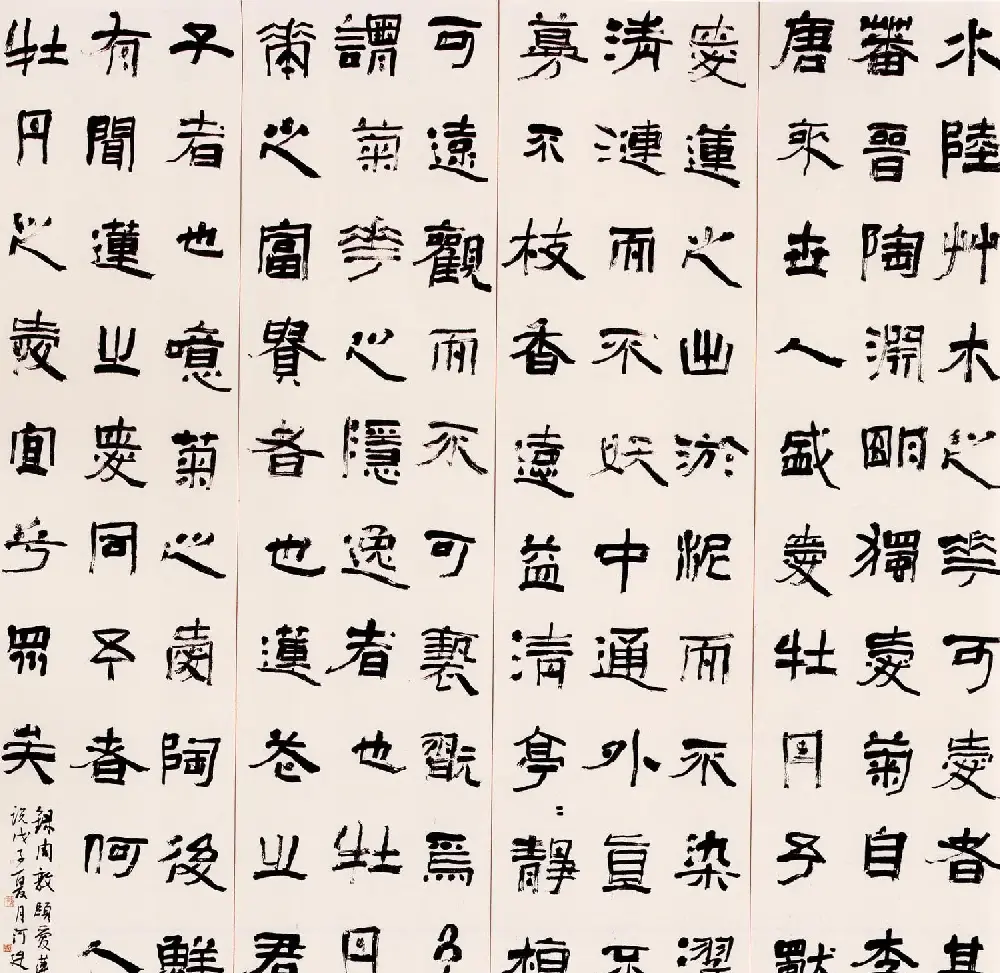 水陸艸木之華可愛者甚
蕃晉陶淵明獨愛菊自李
唐來世人盛愛牡丹予
愛蓮之出淤泥而不染濯
清漣而不妖中通外直不
蔓不枝香遠益清亭:靜植
可遠觀而不可褻翫焉予
謂菊華之隱逸者也牡丹
華之富貴者也蓮華之君
子者也噫菊之愛陶後鮮
有聞蓮之愛同予者何人
牡丹之愛宜乎眾矣
錄周敦頤愛蓮
說戊子夏月河